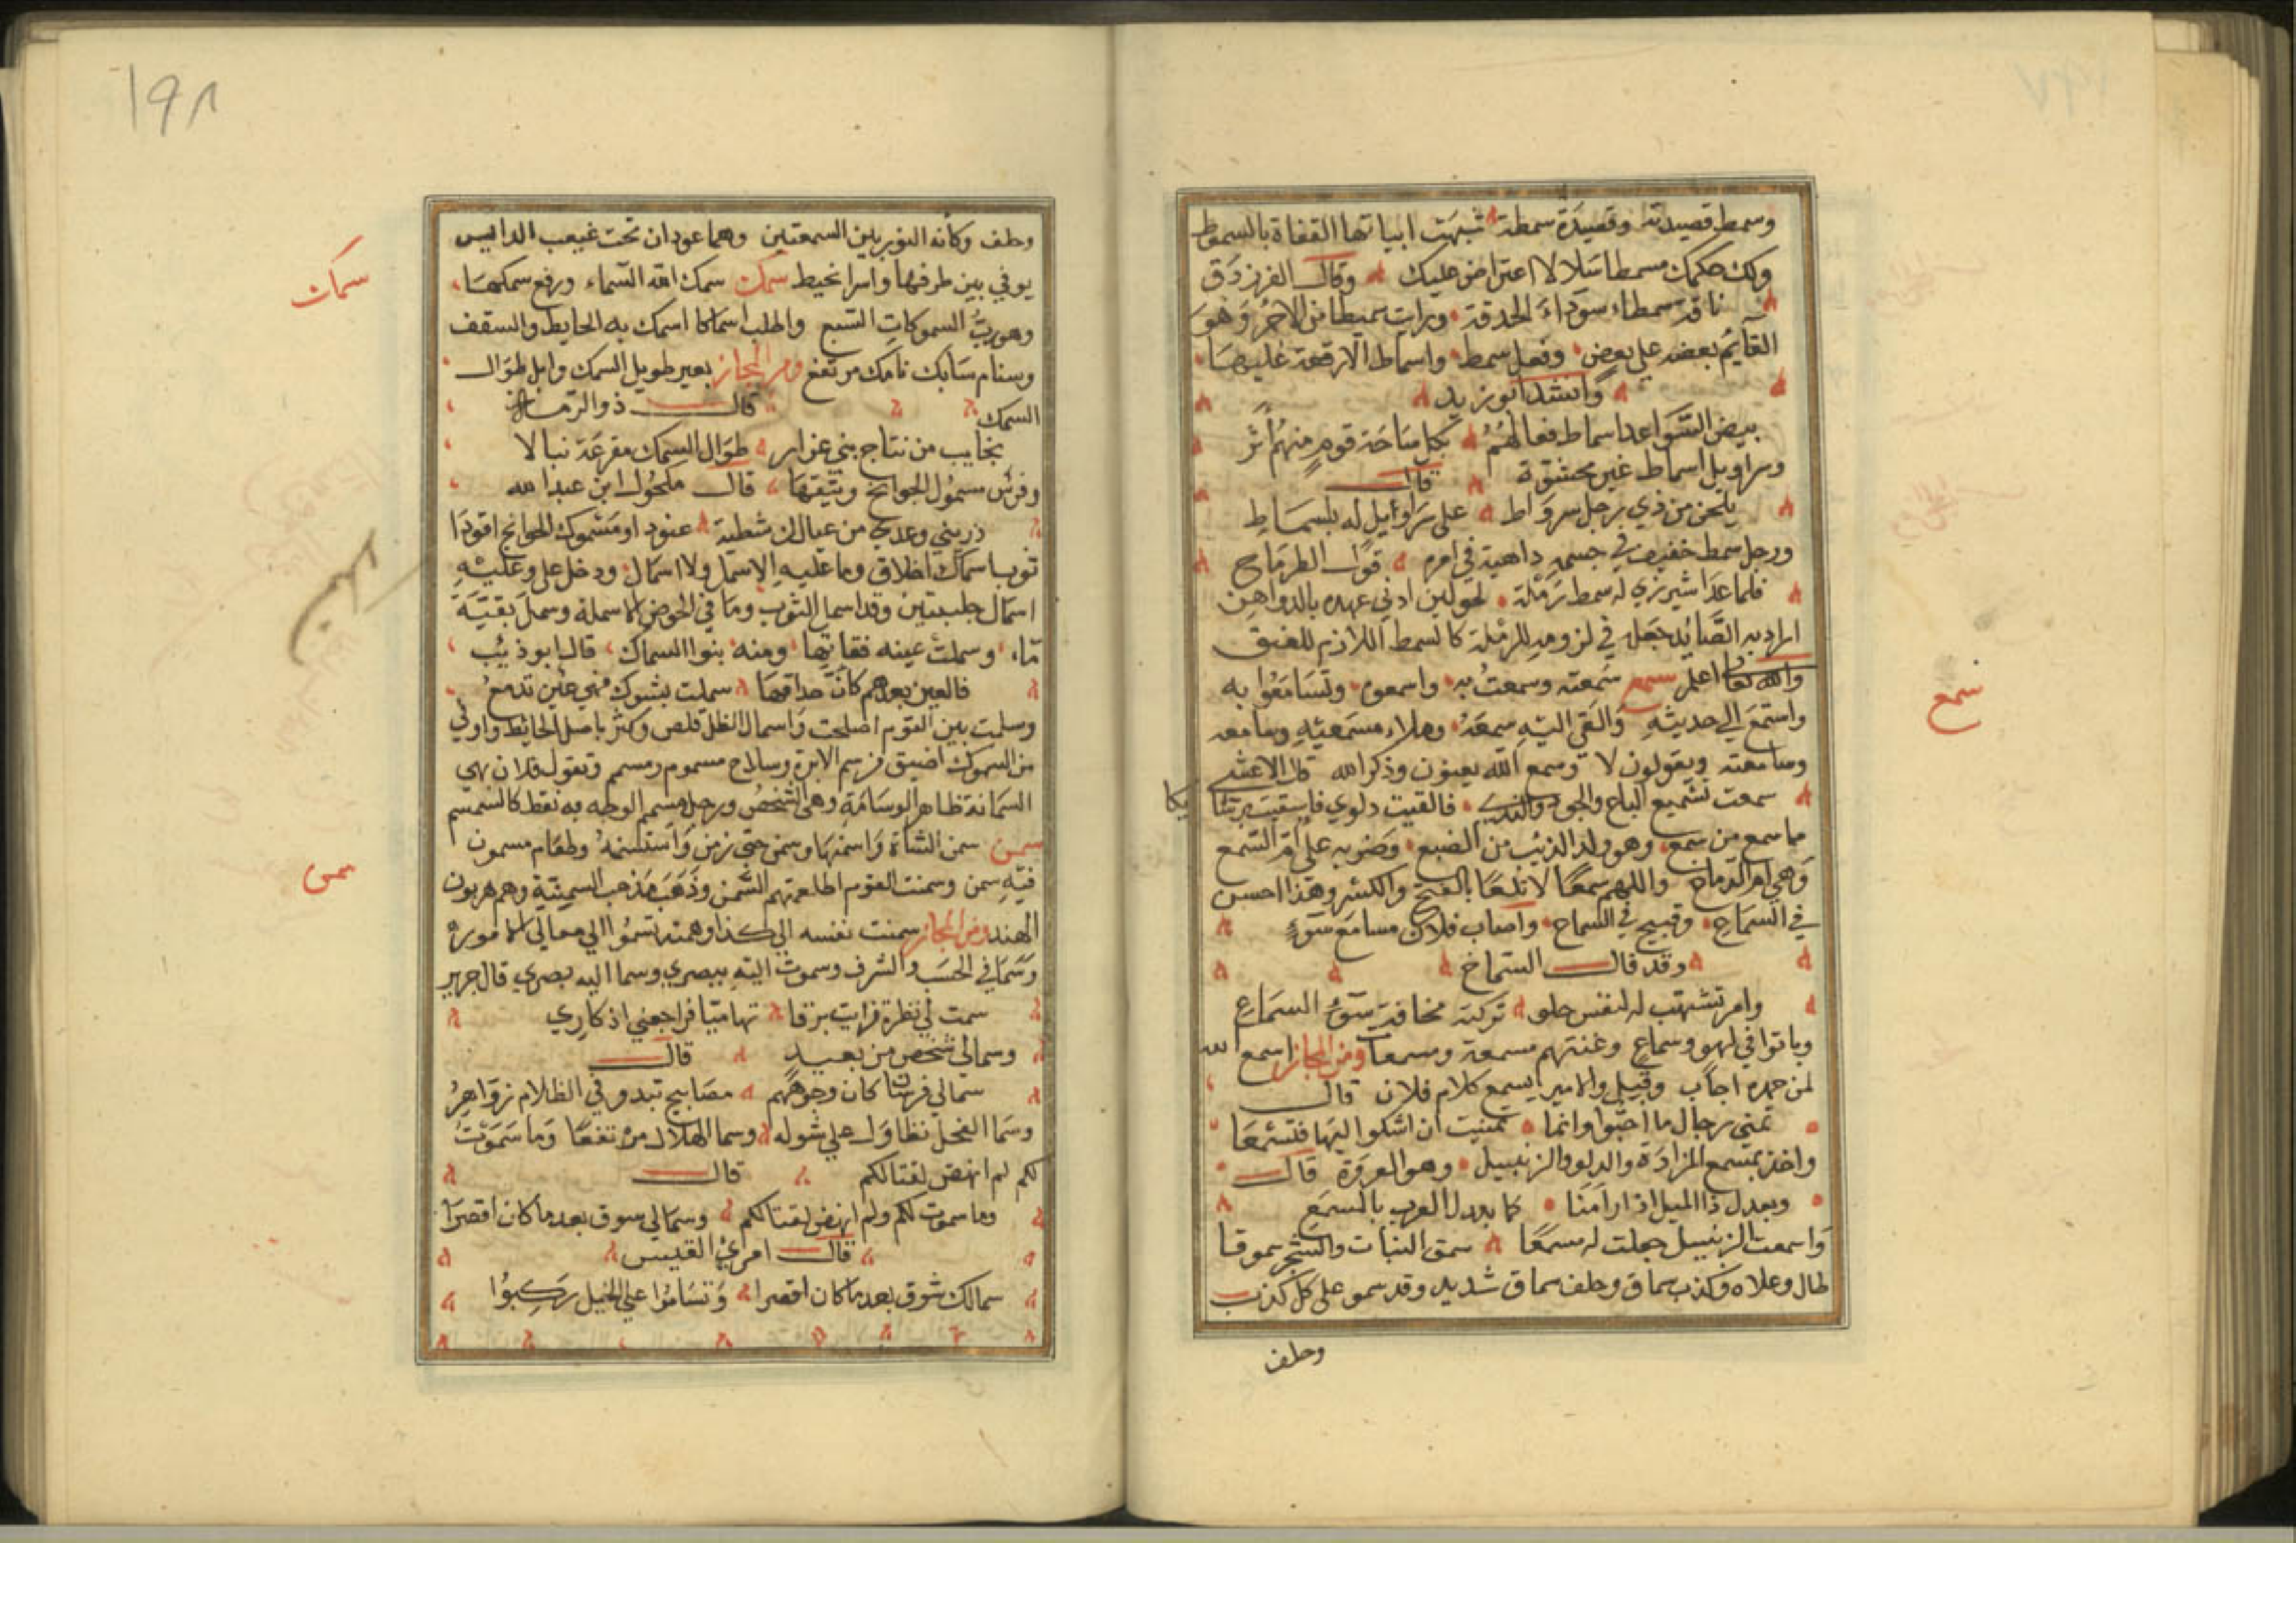 وسمط قصيدته وقصيدة سمطة شبهت ابياتها القفاة بالسموط
ولك حكمك مسمطا سلا لا اعتراض عليك وقال الفرزدق
ناقة سمطاء سوداء الحدقة ورايت سميطا من الاجر وهو
القايم بعضه على بعض وفعل سمط واسماط الارقعة عليها
وانشد ابو زيد
بيض السواعد اسماط فعالهم بكل ساحة قوم منهم اثر
وسراويل اسماط غير محشوة قال
يلحن من ذي زجل سرواط على سراويل له بلسماط
ورجل سمط خفيف في جسمه داهية في امره قول الطرماح
فلما غدا شيرزي له سمط رملة لحولين ادنى عهده بالدواهن
اراد به الصائد جعله في لزومه للرملة كالسمط اللازم للعنق
والله تعالى اعلم سمع سمعته وسمعت به واسمعوه وتسامعوا به
واستمع الى حديثه والقى اليه سمعه وملاء مسمعيه وسامعه
ومسامعته ويقولون لا وسمع الله يعنون وذكر الله قال الاعشى
سمعت تسميع الباع والجود والندى فالقيت دلوي فاستقت برشائكا
ما سمع من سمع وهو ولد الذيب من الضبع وضربه على ام السمع
وهي ام الدماغ واللهم سمعا لا بلغا بالفتح والكسر وهذا احسن
في السماع وقبيح في السماع واصاب فلان مسامع سوء
وقد قال الشماخ
وامر تشتهيه النفس حلو تركت مخافة سوء السماع
وباتوا في لهو وسماع وغنتهم مسمعة ومسمعات ومن المجاز سمع الله
لمن حمده اجاب وقبل والامير يسمع كلام فلان قال
تمنى رجال ما احبوا وانما تمنيت ان اشكوا اليها فتسمعا
واخذ بمسمع المزادة والدلو والزنبيل وهو العروة قال
وبعدل ذا الميل اذ رامنا كما بعدل الغرب بالمسمع
واسمعت الزنبيل جعلت له مسمعا سمق النبات والشجر سموقا
طال وعلاه وكذب سماق وحلف سماق شديد وقد سمو على كل كذب
وحلف
سمع
١٩٨
وحلف وكأنه الثور بين السمعتين وهما عودان تحت غبغب الدايس
يوفي بين طرفيها واسرا بخيط سمك سمك الله السماء ورفع سمكها
وهو رب السموكات السبع واطلب اسماكا اسمك به الحايط والسقف
وسنام سامك تامك مرتفع ومن المجاز بعير طويل السمك وابل طوال
السمك قال ذو الرمة
نجايب من نتاج بني عزار طوال السمك مفرعة نبالا
وفرس مسموك الجوانح وثيقها قال مكحول ابن عبد الله
ذريني وعدي من عيالك شطبة عنودا ومسموك الجوانح اقودا
ثوب اسمال اخلاق وما عليه الا سمل ولا اسمال ودخل علي وعليه
اسمال جلبتين وقد اسمل الثوب وما في الحوض الا سملة وسمل بقية
ماء وسملت عينه فقأتها ومنه بنوا السماك قال ابو ذئيب
فالعين بعدهم كأن حداقها سملت بشوك فهي عين تدمع
وسملت بين القوم اصلحت واسمال الظل قلص وكثر باصل الحائط واوفي
من السموك اضيق من سم الابرة وسلاح مسموم ومسمم وتقول فلان بهي
السمانة ظاهر الوسامة وهي الشخص ورجل مسمم الوجه به نقط كالسمسم
سمن سمن الشاة واسمنها وسمن حتى زمن واستسنه وطعام مسمون
فيه سمن وسمنت القوم اطعمتهم السمن وذهب مذهب السمنية وهم دهريون
الهند ومن المجاز سمنت نفسه الى كذا وهمته تسموا الى معالي الامور
وسما في الحسب والشرف وسموت اليه ببصري وسما اليه بصري قال جرير
سمت لي نظرة فرايت برقا تهاميا فراجعني اذكاري
وسمالي شخص من بعيد قال
سمالي فرسان كان وجوههم مصابيح تبدو في الظلام زواهر
وسما الفحل تطاول على شوله وسما الهلال مرتفعا وما سموت
لكم لم انهض لقتالكم قال
وما سموت لكم ولم انهض لقتالكم وسمالي سوق بعد ما كان اقصرا
قال امرئ القيس
سمالك شوق بعد ما كان اقصرا وتساموا على الخيل ركبوا
سمك
سمن